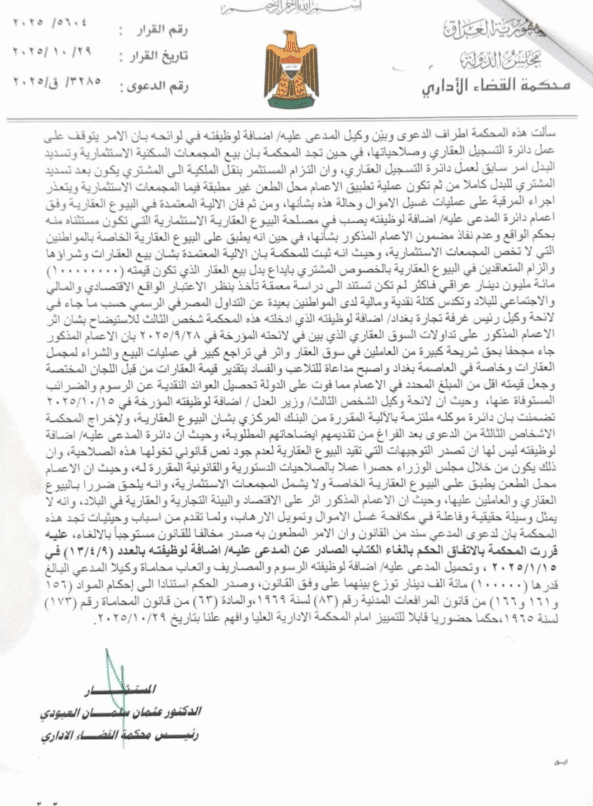 بسم الله الرحمن الرحيم
جمهورية العراق
مجلس الدولة
محكمة القضاء الأداري
رقم القرار : ٥٦٠٤/ ٢٠٢٥
تاريخ القرار : ٢٩/ ١٠/ ٢٠٢٥
رقم الدعوى : ٣٢٨٥/ ق/٢٠٢٥
سألت هذه المحكمة اطراف الدعوى وبين وكيل المدعى عليه/ اضافة لوظيفته في لوائحه بان الامر يتوقف على
عمل دائرة التسجيل العقاري وصلاحياتها، في حين تجد المحكمة بان بيع المجمعات السكنية الاستثمارية وتسديد
البدل امر سابق لعمل دائرة التسجيل العقاري، وان التزام المستثمر بنقل الملكية الى المشتري يكون بعد تسديد
المشتري للبدل كاملا من ثم تكون عملية تطبيق الاعمام محل الطعن غير مطبقة فيما المجمعات الاستثمارية ويتعذر
اجراء المرقبة على عمليات غسيل الاموال وحالة هذه بشأنها، ومن ثم فان الالية المعتمدة في البيوع العقارية وفق
اعمام دائرة المدعى عليه/ اضافة لوظيفته يصب في مصلحة البيوع العقارية الاستثمارية التي تكون مستثناه منه
بحكم الواقع وعدم نفاذ مضمون الاعمام المذكور بشأنها، في حين انه يطبق على البيوع العقارية الخاصة بالمواطنين
التي لا تخص المجمعات الاستثمارية، وحيث انه ثبت للمحكمة بان الالية المعتمدة بشأن بيع العقارات وشراؤها
والزام المتعاقدين في البيوع العقارية بالخصوص المشتري بايداع بدل بيع العقار الذي تكون قيمته (١٠٠٠٠٠٠٠٠)
مائة مليون دينار عراقي فاكثر لم تكن تستند الى دراسة معمقة تأخذ بنظر الاعتبار الواقع الاقتصادي والمالي
والاجتماعي للبلاد وتكدس كتلة نقدية ومالية لدى المواطنين بعيدة عن التداول المصرفي الرسمي حسب ما جاء في
لائحة وكيل رئيس غرفة تجارة بغداد/ اضافة لوظيفته الذي ادخلته هذه المحكمة شخص الثالث للاستيضاح بشان اثر
الاعمام المذكور على تداولات السوق العقاري الذي بين في لائحته المؤرخة في ٢٠٢٥/٩/٢٨ بان الاعمام المذكور
جاء مجحفا بحق شريحة كبيرة من العاملين في سوق العقار واثر في تراجع كبير في عمليات البيع والشراء لمجمل
العقارات وخاصة في العاصمة بغداد واصبح مدعاة للتلاعب والفساد بتقدير قيمة العقارات من قبل اللجان المختصة
وجعل قيمته اقل من المبلغ المحدد في الاعمام مما فوت على الدولة تحصيل العوائد النقدية عن الرسوم والضرائب
المستوفاة عنها، وحيث ان لائحة وكيل الشخص الثالث/ وزير العدل / اضافة لوظيفته المؤرخة في ٢٠٢٥/١٠/١٥
تضمنت بان دائرة موكله ملتزمة بالألية المقررة من البنك المركزي بشان البيوع العقارية، ولإخراج المحكمة
الاشخاص الثالثة من الدعوى بعد الفراغ من تقديمهم ايضاحاتهم المطلوبة، وحيث ان دائرة المدعى عليه/ اضافة
لوظيفته ليس لها ان تصدر التوجيهات التي تقيد البيوع العقارية لعدم جود نص قانوني تخولها هذه الصلاحية، وان
ذلك يكون من خلال مجلس الوزراء حصرا عملا بالصلاحيات الدستورية والقانونية المقررة له، وحيث ان الاعمام
محل الطعن يطبق على البيوع العقارية الخاصة ولا يشمل المجمعات الاستثمارية، وانه يلحق ضررا بالبيوع
العقاري والعاملين عليها، وحيث ان الاعمام المذكور اثر على الاقتصاد والبيئة التجارية والعقارية في البلاد، وانه لا
يمثل وسيلة حقيقية وفاعلة في مكافحة غسل الاموال وتمويل الارهاب، ولما تقدم من اسباب وحيثيات تجد هذه
المحكمة بان لدعوى المدعي سند من القانون وان الامر المطعون به صدر مخالفا للقانون مستوجباً بالالغاء، عليه
قررت المحكمة بالاتفاق الحكم بالغاء الكتاب الصادر عن المدعى عليه/ اضافة لوظيفته بالعدد (١٣/٤/٩) في
٢٠٢٥/١/١٥ ، وتحميل المدعى عليه/ اضافة لوظيفته الرسوم والمصاريف واتعاب محاماة وكيلا المدعي البالغ
قدرها (١٠٠٠٠٠) مائة الف دينار توزع بينهما على وفق القانون، وصدر الحكم استنادا الى إحكام المواد (١٥٦
و١٦١ و١٦٦) من قانون المرافعات المدنية رقم (٨٣) لسنة ١٩٦٩،والمادة (٦٣) من قانون المحاماة رقم (١٧٣)
لسنة ١٩٦٥،حكما حضوريا قابلا للتمييز امام المحكمة الادارية العليا وافهم علنا بتاريخ ٢٠٢٥/١٠/٢٩.
المستشار
الدكتور عثمان سلمان العبودي
رئيس محكمة القضاء الاداري